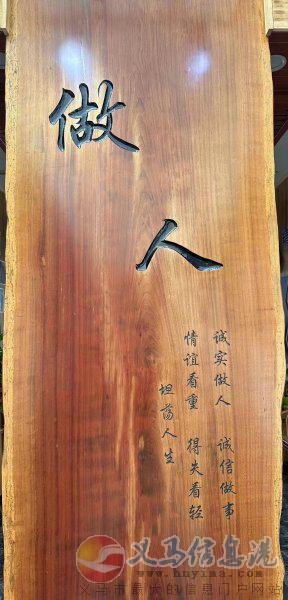 做人
诚实做人 诚信做事
情谊看重 得失看轻
坦荡人生
义马信息港
www.hnyima.com
义马市最大的信息门户网站